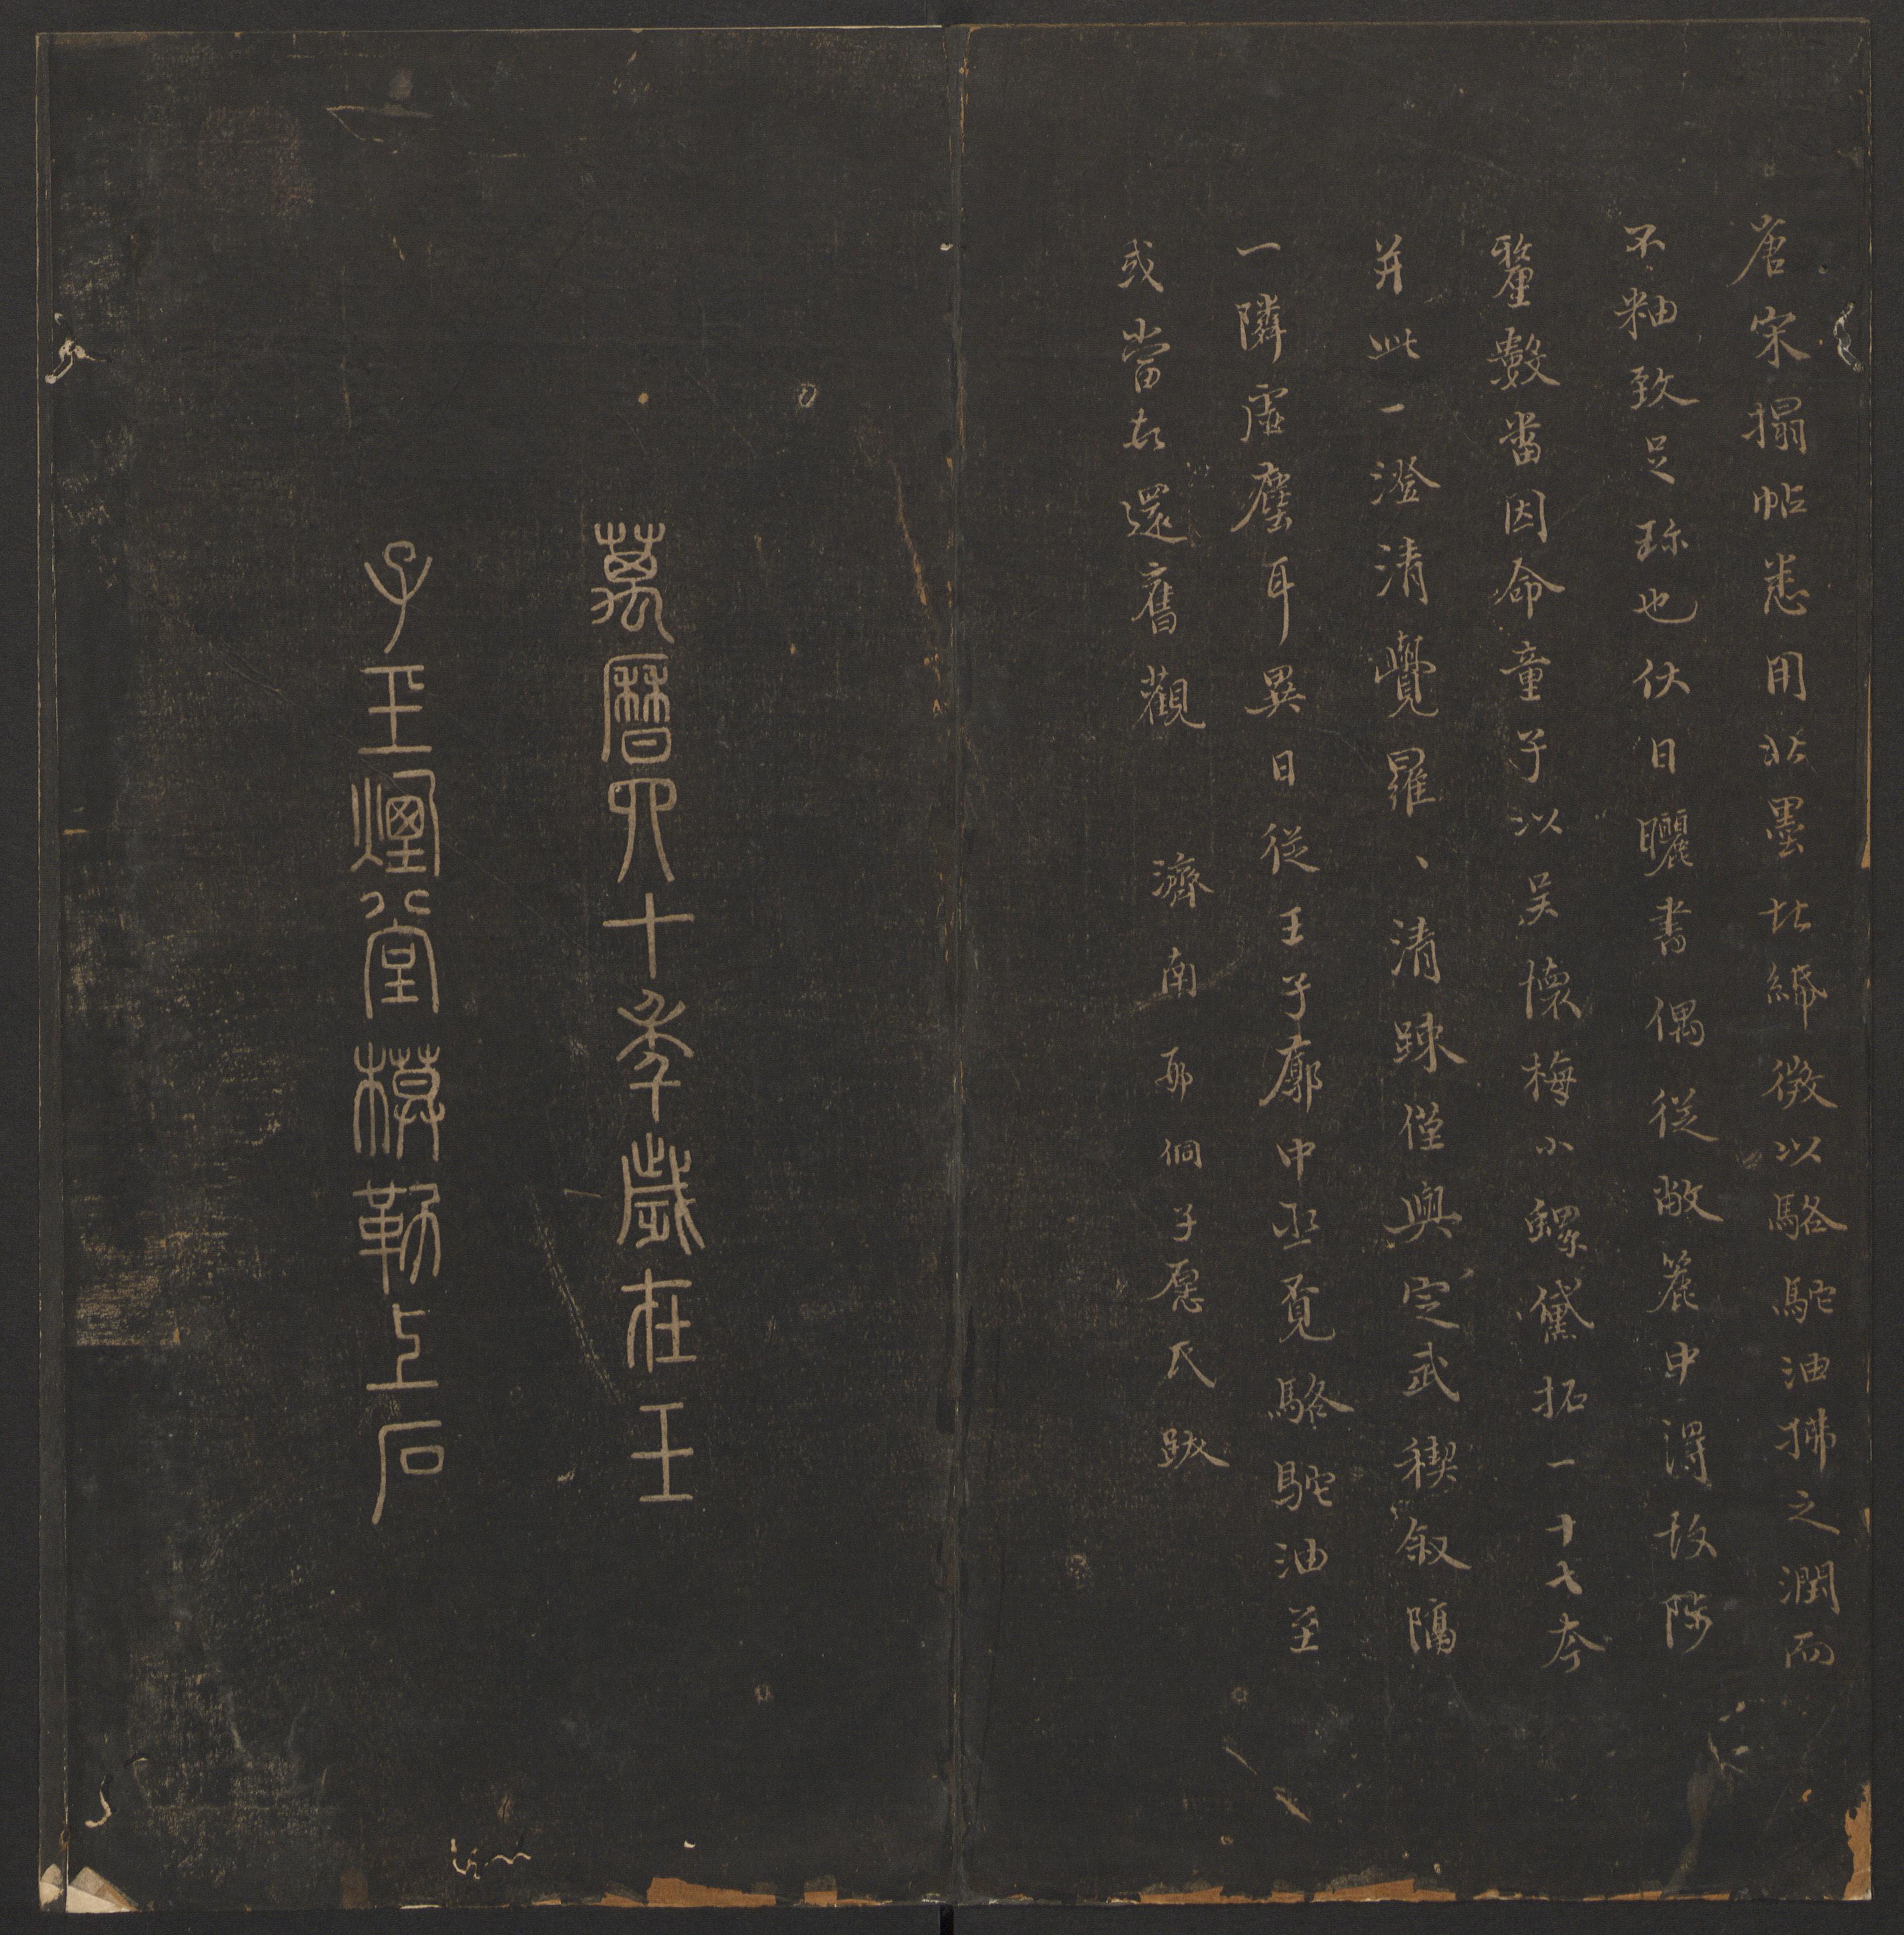 唐宋搨帖悉用北墨北綿微以駱駝油拂之潤而
不釉致足珎也伏日曬書偶從敝簏中得故隃
釐數當因命童子以吴懷梅小螺黛拓一十七夲
并此一澄清覺羅、清疎僅與定武禊叙隔
一隣虛塵耳異日從王子廓中丞覔駱駝油至
或當太還舊觀 濟南邢侗子愿氏跋
萬曆四十年歲在壬
子玉煙堂模勒上石